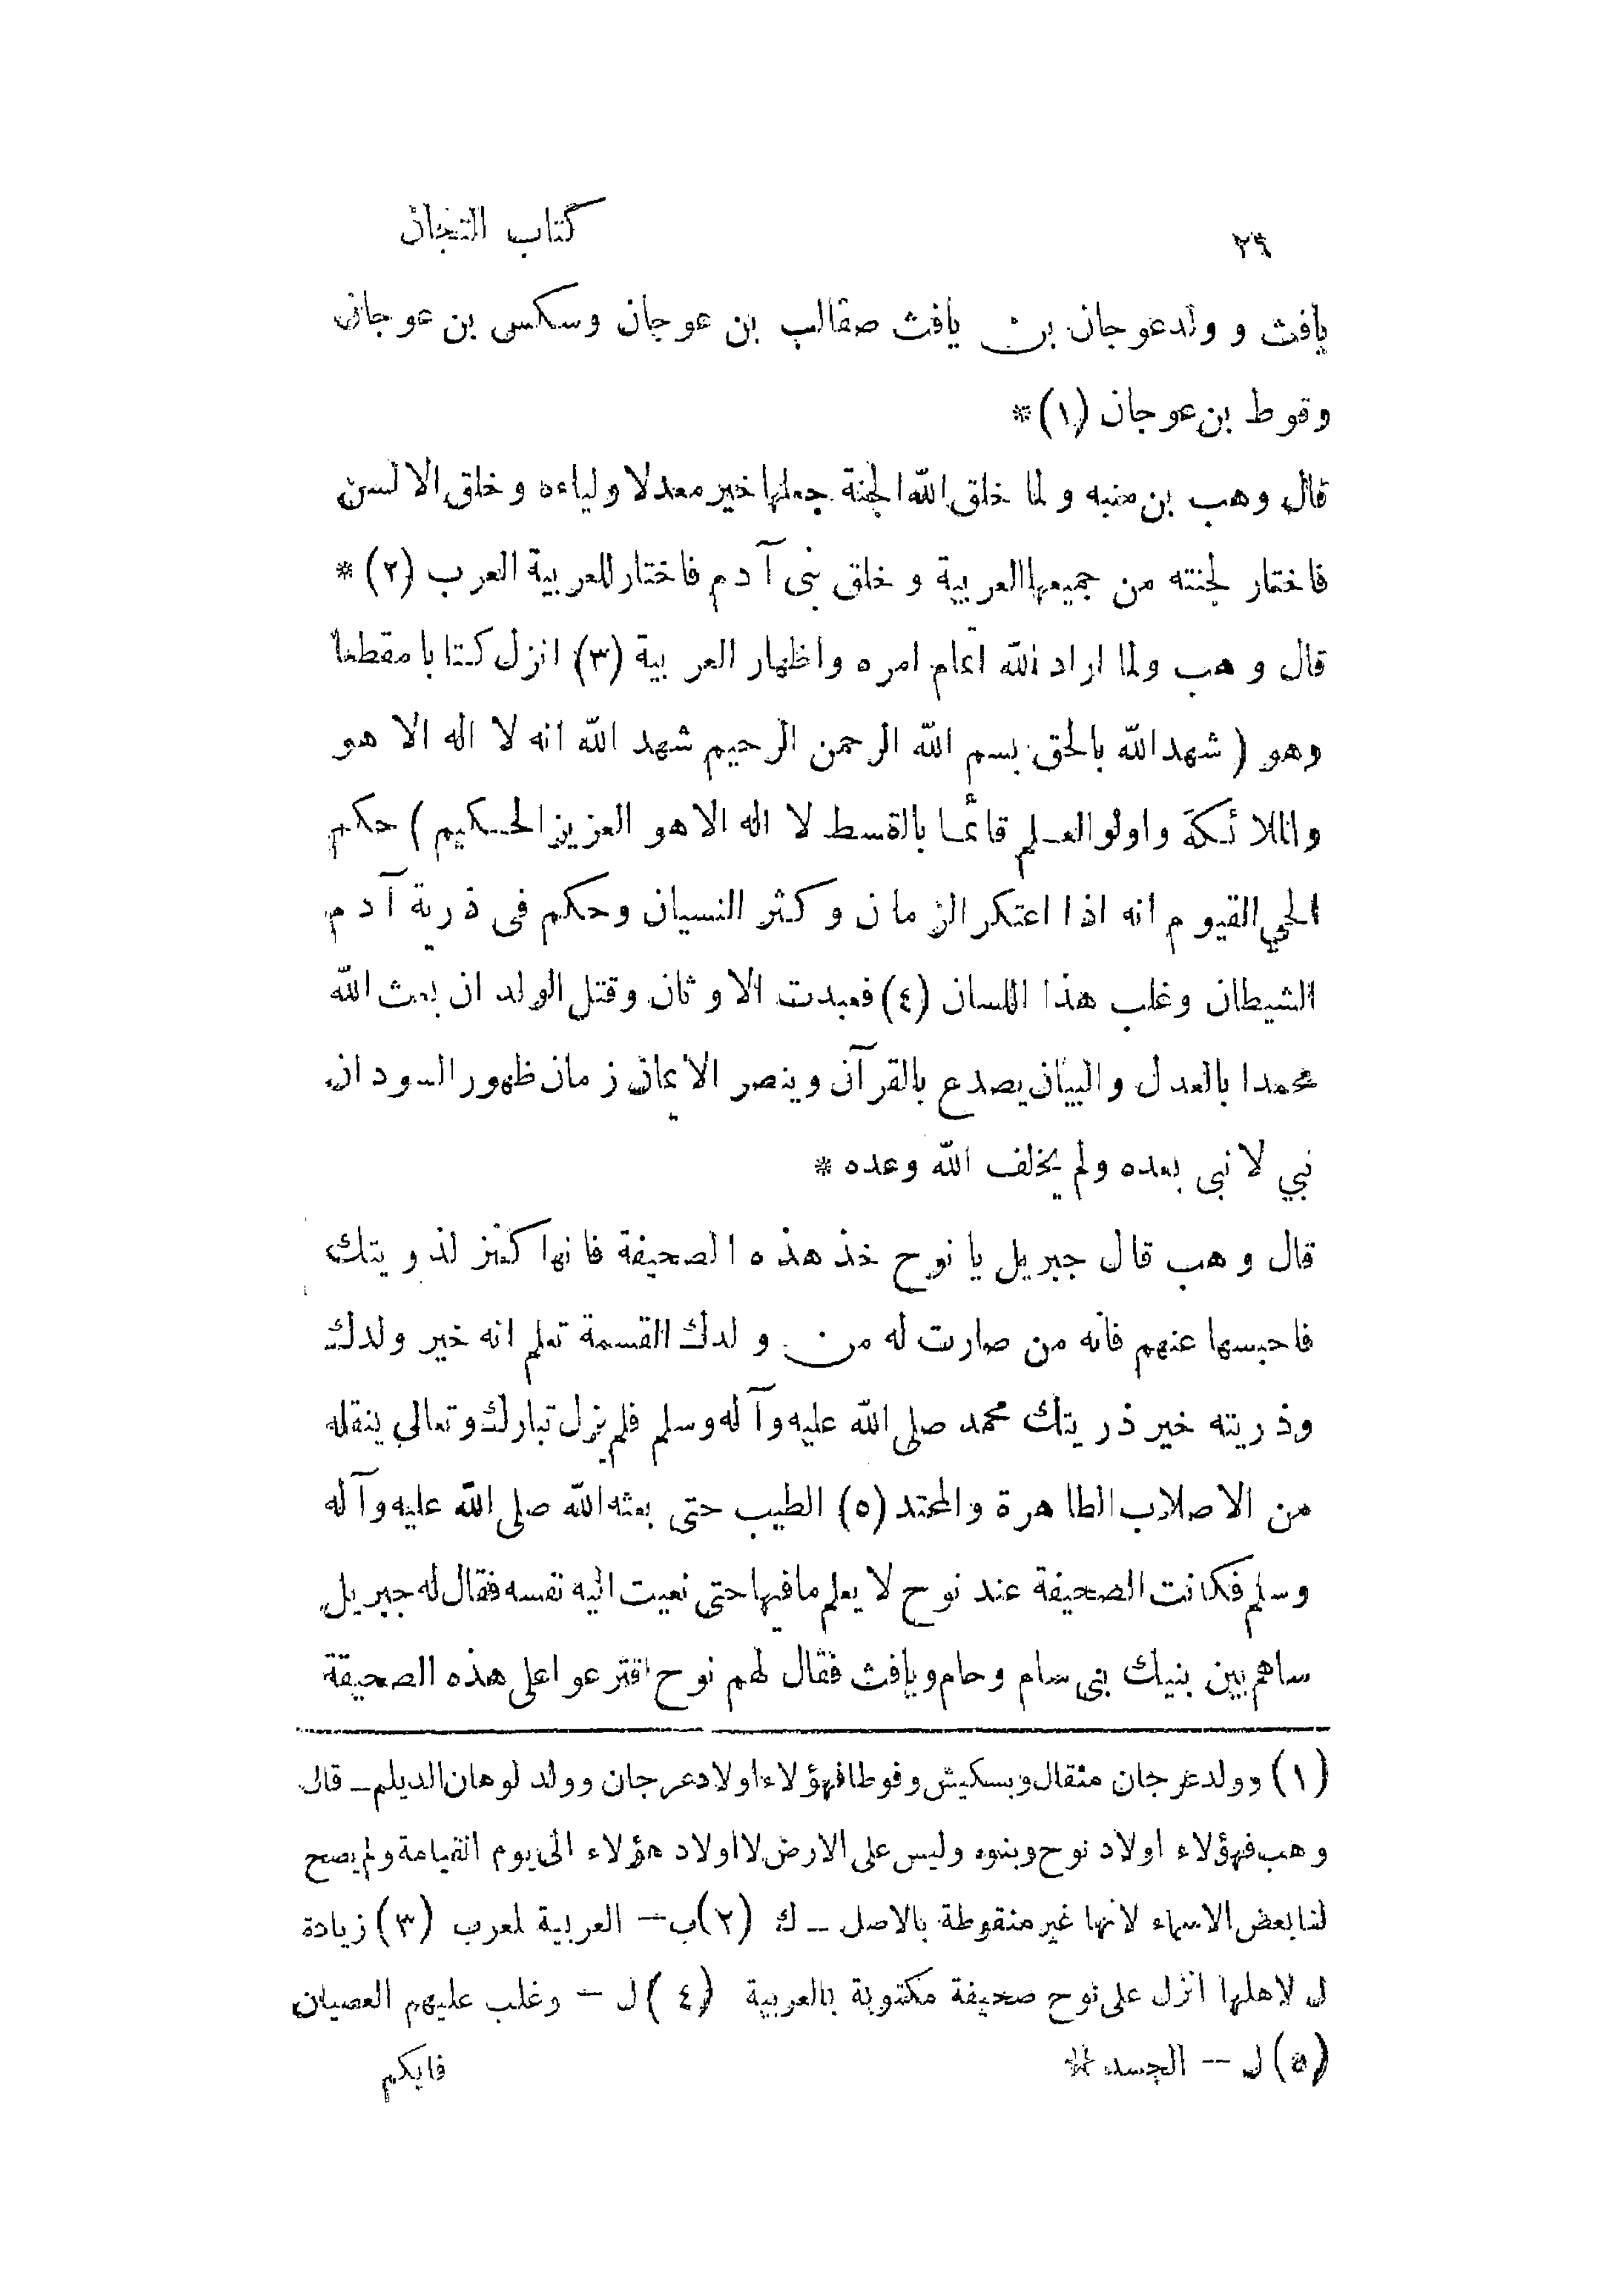 ٢٩ كتاب التيجان
يافث و ولد عوجان بن يافث صقالب بن عوجان وسكس بن عوجان
وقوط بن عوجان (١)*
قال وهب بن منبه ولما خلق الله الجنة جعلها خير معد لاولياءه وخلق الالسن
فاختار لجنته من جميعها العربية وخلق بنى آدم فاختار للعربية العرب (٢)*
قال وهب ولما اراد الله اتمام امره واظهار العربية (٣) انزل كتابا مقطعا
وهو (شهد الله بالحق بسم الله الرحمن الرحيم شهد الله انه لا اله الا هو
والملائكة واولو العلم قائما بالقسط لا اله الا هو العزيز الحكيم) حكم
الحي القيوم انه اذا اعتكر الزمان وكثر النسيان وحكم فى ذرية آدم
الشيطان وغلب هذا اللسان (٤) فعبدت الاوثان وقتل الولدان بعث الله
محمدا بالعدل والبيان يصدع بالقرآن وينصر الايمان زمان ظهور السودان
نبي لا نبى بعده ولم يخلف الله وعده *
قال وهب قال جبريل يا نوح خذ هذه الصحيفة فانها كنز لذويتك
فاحبسها عنهم فانه من صارت له من ولدك القسمة تعلم انه خير ولدك
وذريته خير ذريتك محمد صلى الله عليه وآله وسلم فلم يزل تبارك وتعالي ينقله
من الاصلاب الطاهرة والمحتد (٥) الطيب حتى بعثه الله صلى الله عليه وآله
وسلم فكانت الصحيفة عند نوح لا يعلم ما فيها حتى نعيت اليه نفسه فقال له جبريل
ساهم بين بنيك بنى سام وحام ويافث فقال لهم نوح اقترعوا على هذه الصحيقة
(١) وولد عرجان منقال وبسكيش وفوطا فهؤلاء اولاد عرجان وولد لوهان الديلم ــ قال
وهب فهؤلاء اولاد نوح وبنوه وليس على الارض لا اولاد هؤلاء الى يوم القيامة ولم يصح
لنا بعض الاسماء لانها غير منقوطة بالاصل ــ ك (٢) ب — العربية لعرب (٣) زيادة
ل لاهلها انزل على نوح صحيفة مكتوبة بالعربية (٤) ل — وغلب عليهم العصيان
(٥) ل — الجسد ** فايكم